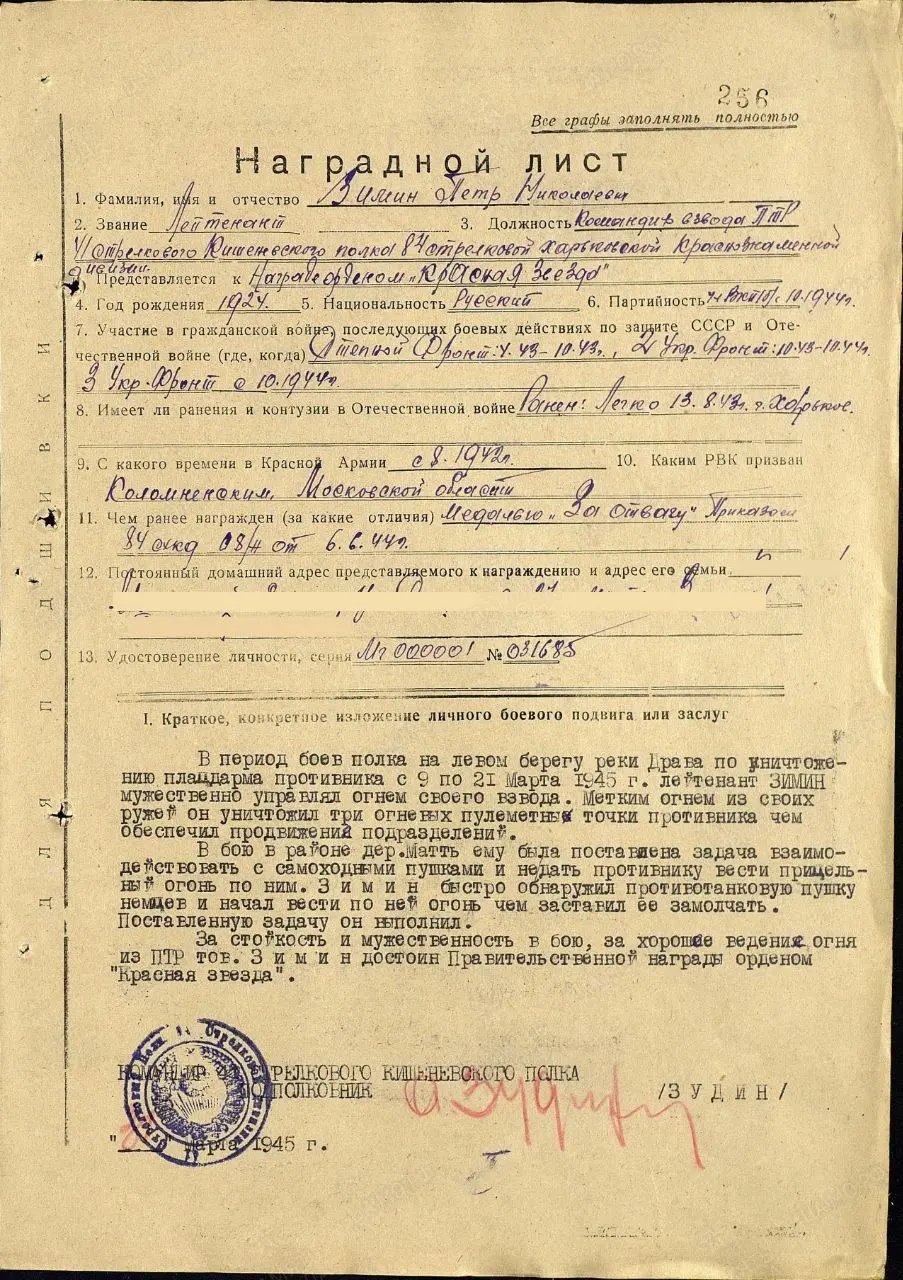 256
Все графы заполнять полностью
Наградной лист
1. Фамилия, имя и отчество Зимин Петр Николаевич
2. Звание Лейтенант 3. Должность Командир взвода ПТР
41 стрелкового Кишеневского полка 84 стрелковой Харьковской Краснознаменной
дивизии
Представляется к Награде орденом „Красная Звезда"
4. Год рождения 1924 5. Национальность Русский 6. Партийность чл ВКП(б) с 10.1944г.
7. Участие в гражданской войне, последующих боевых действиях по защите СССР и Оте-
чественной войне (где, когда) Степной Фронт: 43-10.43г., 2 Укр. Фронт: 10.43-10.44г.
3 Укр. Фронт с 10.1944г.
8. Имеет ли ранения и контузии в Отечественной войне Ранен: Легко 13.8.43г. г. Харьков.
9. С какого времени в Красной Армии с 8.1942г. 10. Каким РВК призван
Коломненским, Московской области
11. Чем ранее награжден (за какие отличия) Медалью „За отвагу" Приказом
84 скд 08/н от 6.6.44г.
12. Постоянный домашний адрес представляемого к награждению и адрес его семьи
13. Удостоверение личности, серия № 031685
I. Краткое, конкретное изложение личного боевого подвига или заслуг
В период боев полка на левом берегу реки Драва по уничтоже-
нию плацдарма противника с 9 по 21 Марта 1945 г. лейтенант ЗИМИН
мужественно управлял огнем своего взвода. Метким огнем из своих
ружей он уничтожил три огневых пулеметные точки противника чем
обеспечил продвижений подразделений.
В бою в районе дер.Матть ему была поставлена задача взаимо-
действовать с самоходными пушками и недать противнику вести прицель-
ный огонь по ним. З и м и н быстро обнаружил противотанковую пушку
немцев и начал вести по ней огонь чем заставил ее замолчать.
Поставленную задачу он выполнил.
За стойкость и мужественность в бою, за хорошее ведение огня
из ПТР тов. З и м и н достоин Правительственной награды орденом
"Красная звезда".
КОМАНДИР СТРЕЛКОВОГО КИШЕНЕВСКОГО ПОЛКА
ПОДПОЛКОВНИК /З У Д И Н/
марта 1945 г.
ДЛЯ ПОДШИВКИ